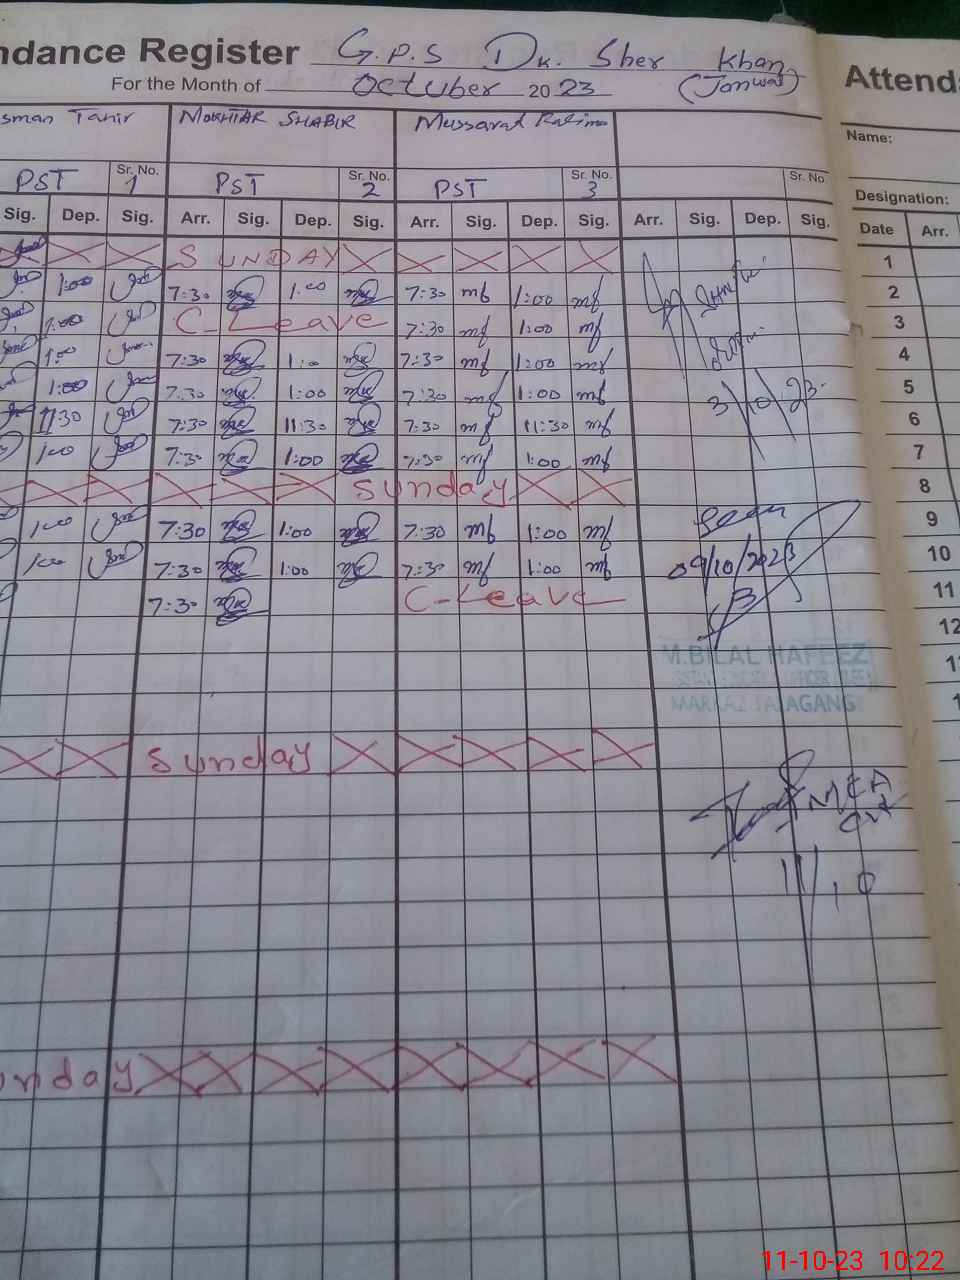 ndance Register G.P.S Dk. Sher Khan
For the Month of October 2023 (Janwal)
Attend
sman Tahir MOKHTAR SHABIR Mussarat
Name:
PST Sr. No. 1 PST Sr. No. 2 PST Sr. No. 3 Sr. No
Designation:
Sig. Dep. Sig. Arr. Sig. Dep. Sig. Arr. Sig. Dep. Sig. Arr. Sig. Dep. Sig. Date Arr.
SUNDAY 1
1:00 7:30 1.00 7:30 mf 1:00 mf 2
1:00 C-Leave 7:30 mf 1:00 mf 3
1:00 7:30 1:0 7:30 mf 1:00 mf 4
1:00 7:30 1:00 7:30 mf 1:00 mf 5
3/10/23
11:30 7:30 11:30 7:30 mf 11:30 mf 6
1:00 7:30 1:00 7:30 mf 1:00 mf 7
Sunday 8
1:00 7:30 1:00 7:30 mf 1:00 mf Seen 9
1:00 7:30 1:00 7:30 mf 1:00 mf 09/10/2023 10
7:30 C-Leave 11
12
M.BILAL HAFEEZ
MARKAZ TALAGANG
Sunday
MEA
11/10
unday
11-10-23 10:22